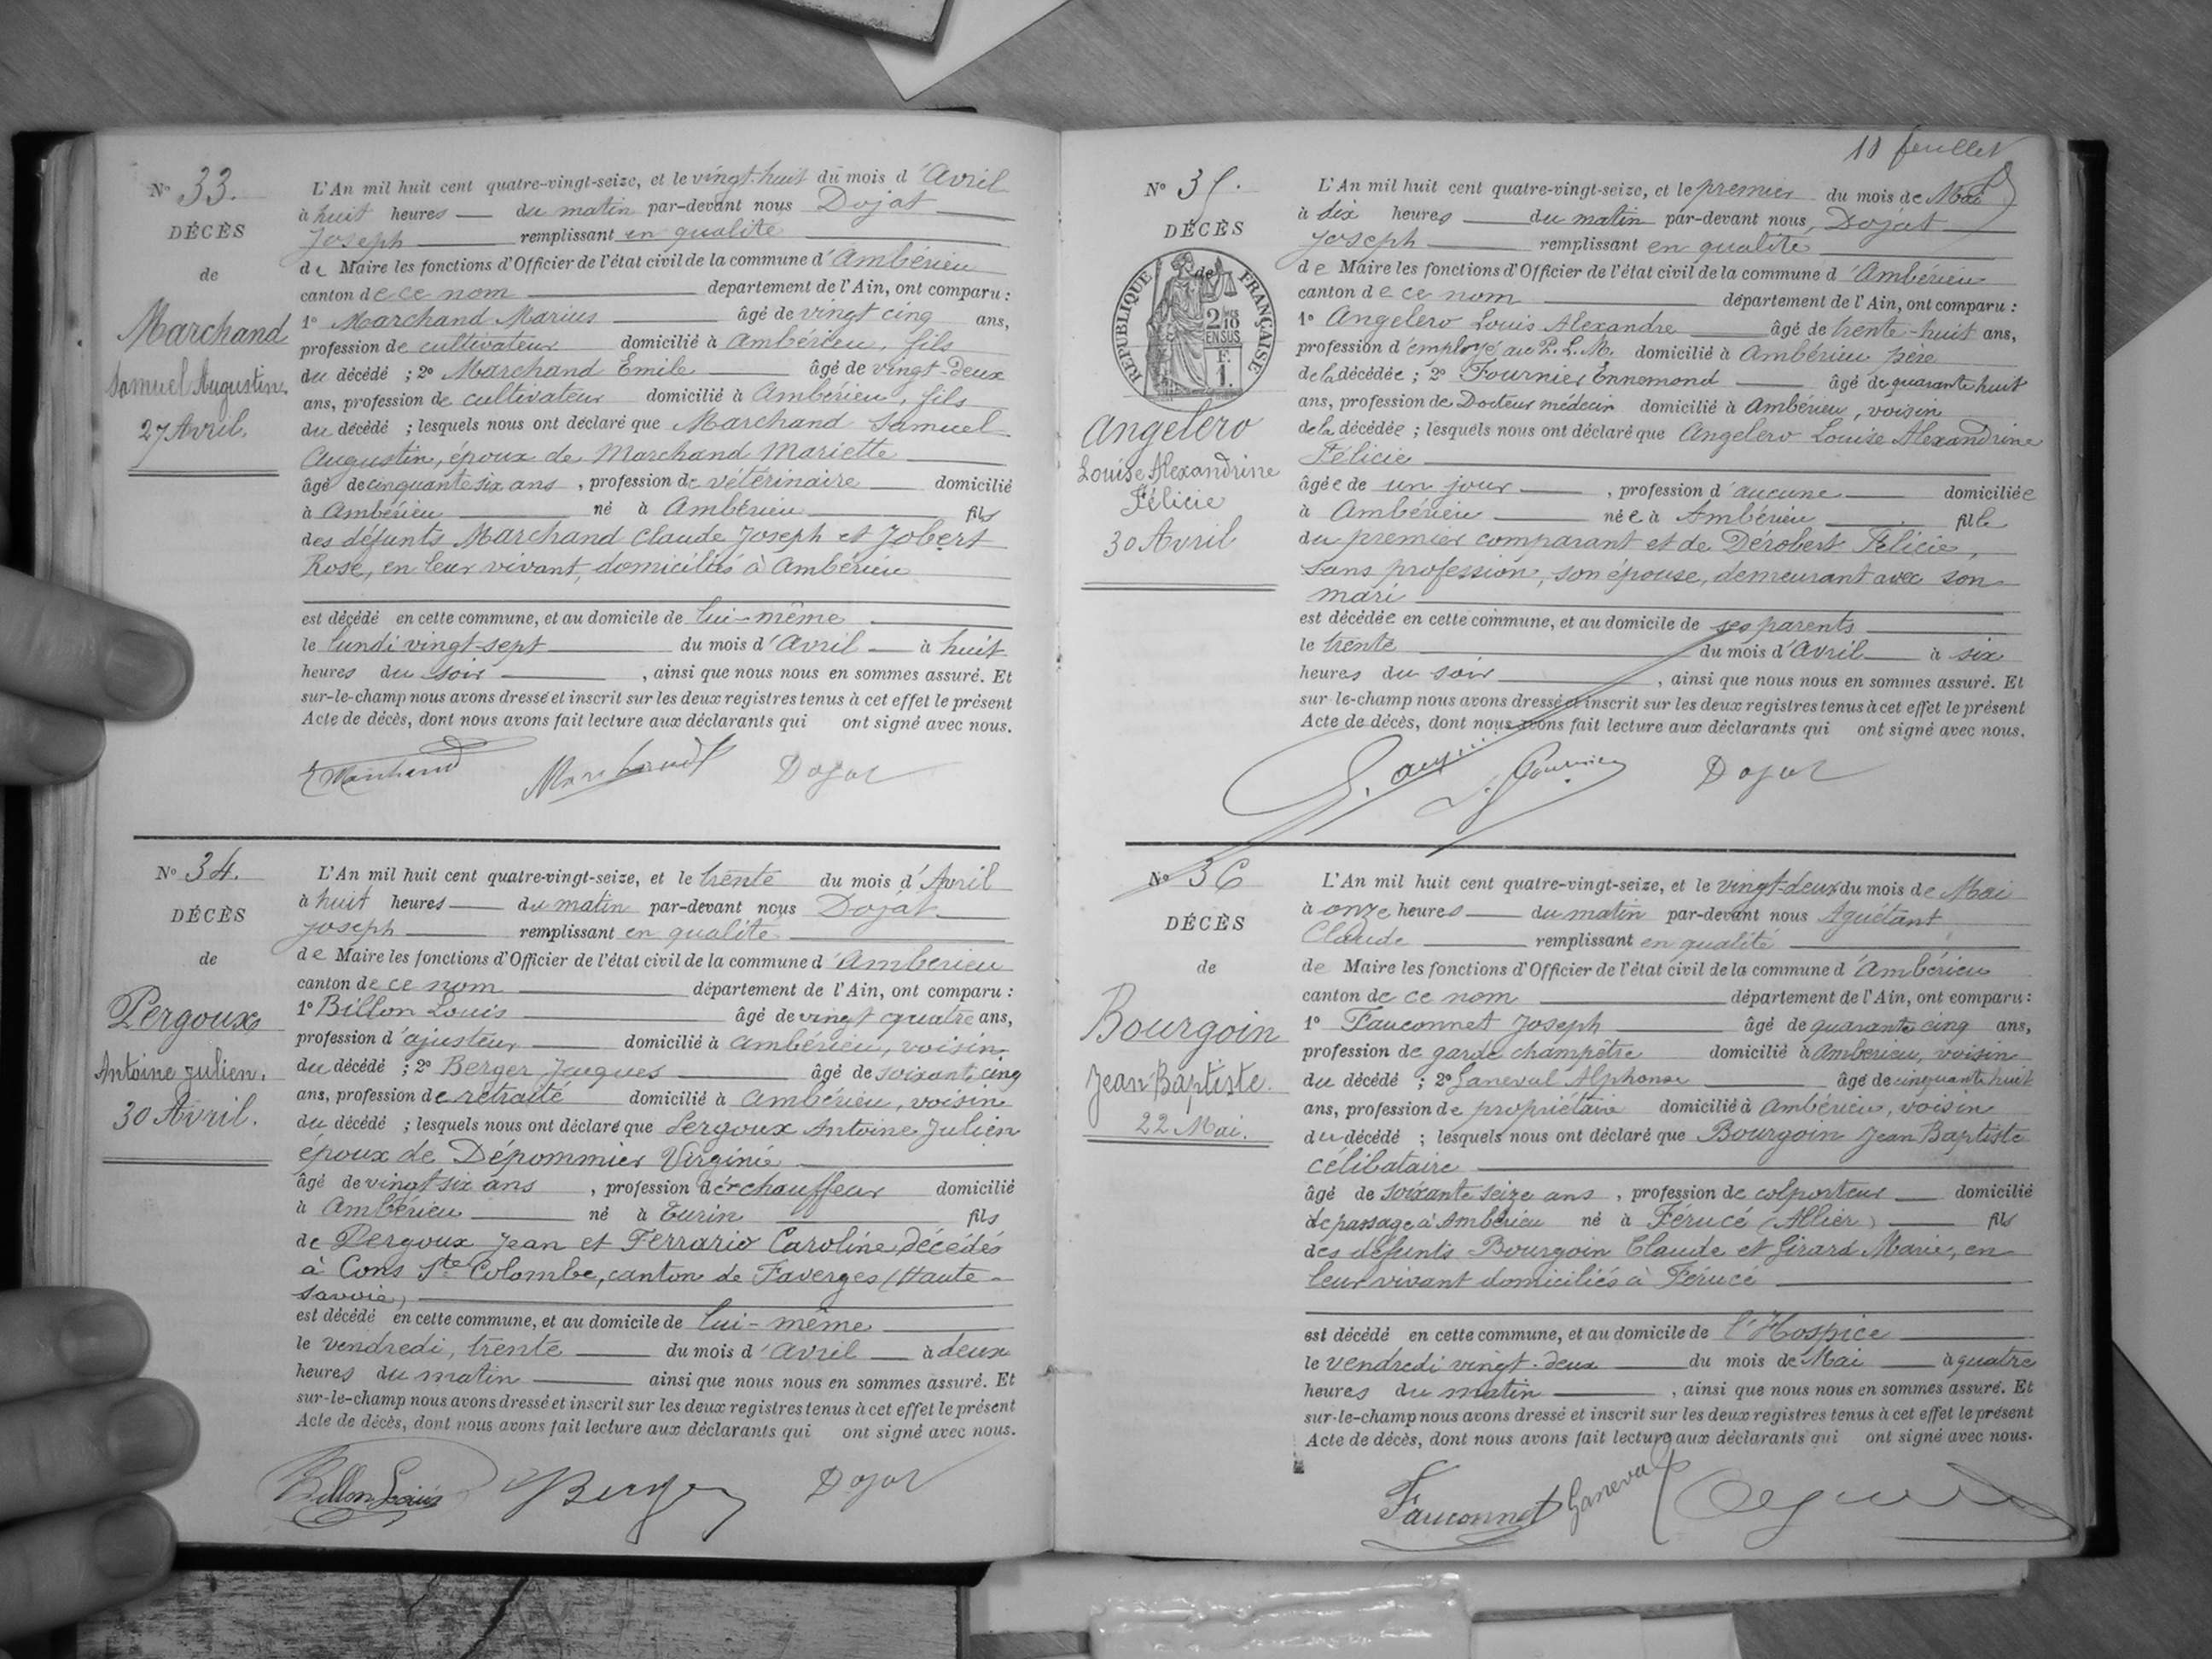 N° 33.
DÉCÈS
de
Marchand
Samuel Augustin.
27 Avril.
L'An mil huit cent quatre-vingt-seize, et le vingt-huit du mois d'Avril
à huit heures du matin par-devant nous Dojat
Joseph remplissant en qualité
de Maire les fonctions d'Officier de l'état civil de la commune d'Ambérieu
canton de ce nom departement de l'Ain, ont comparu :
1° Marchand Marius âgé de vingt cinq ans,
profession de cultivateur domicilié à Ambérieu, fils
du décédé ; 2° Marchand Emile âgé de vingt-deux
ans, profession de cultivateur domicilié à Ambérieu, fils
du décédé ; lesquels nous ont déclaré que Marchand Samuel
Augustin, époux de Marchand Mariette
âgé de cinquante six ans , profession de vétérinaire domicilié
à Ambérieu né à Ambérieu fils
des défunts Marchand Claude Joseph et Jobert
Rose, en leur vivant, domiciliés à Ambérieu
est décédé en cette commune, et au domicile de lui-même
le lundi vingt-sept du mois d'Avril à huit
heures du soir , ainsi que nous nous en sommes assuré. Et
sur-le-champ nous avons dressé et inscrit sur les deux registres tenus à cet effet le présent
Acte de décès, dont nous avons fait lecture aux déclarants qui ont signé avec nous.
Marchand Marchand Dojat
N° 34.
DÉCÈS
de
Pergoux
Antoine Julien.
30 Avril.
L'An mil huit cent quatre-vingt-seize, et le trente du mois d'Avril
à huit heures du matin par-devant nous Dojat
Joseph remplissant en qualité
de Maire les fonctions d'Officier de l'état civil de la commune d'Ambérieu
canton de ce nom département de l'Ain, ont comparu :
1° Billon Louis âgé de vingt quatre ans,
profession d'ajusteur domicilié à Ambérieu, voisin
du décédé ; 2° Berger Jacques âgé de soixante cinq
ans, profession de retraité domicilié à Ambérieu, voisin
du décédé ; lesquels nous ont déclaré que Pergoux Antoine Julien
époux de Dépommier Virginie
âgé de vingt six ans , profession de chauffeur domicilié
à Ambérieu né à Turin fils
de Pergoux Jean et Ferrario Caroline, décédés
à Cons Ste Colombe, canton de Faverges (Haute-
Savoie)
est décédé en cette commune, et au domicile de lui-même
le vendredi, trente du mois d'Avril à deux
heures du matin ainsi que nous nous en sommes assuré. Et
sur-le-champ nous avons dressé et inscrit sur les deux registres tenus à cet effet le présent
Acte de décès, dont nous avons fait lecture aux déclarants qui ont signé avec nous.
Billon Louis Berger Dojat
11 feuillet
N° 35.
DÉCÈS
de
RÉPUBLIQUE FRANÇAISE
2/10
EN SUS
F.
1.
Angelero
Louise Alexandrine
Félicie
30 Avril
L'An mil huit cent quatre-vingt-seize, et le premier du mois de Mai
à dix heures du matin par-devant nous, Dojat
Joseph remplissant en qualité
de Maire les fonctions d'Officier de l'état civil de la commune d'Ambérieu
canton de ce nom département de l'Ain, ont comparu :
1° Angelero Louis Alexandre âgé de trente-huit ans,
profession d'employé au P. L. M. domicilié à Ambérieu père
de la décédée ; 2° Fournier Ennemond âgé de quarante huit
ans, profession de Docteur médecin domicilié à Ambérieu, voisin
de la décédée ; lesquels nous ont déclaré que Angelero Louise Alexandrine
Félicie
âgée de un jour , profession d'aucune domiciliée
à Ambérieu née à Ambérieu fille
du premier comparant et de Dérobert Félicie,
sans profession, son épouse, demeurant avec son
mari
est décédée en cette commune, et au domicile de ses parents
le trente du mois d'Avril à six
heures du soir , ainsi que nous nous en sommes assuré. Et
sur-le-champ nous avons dressé et inscrit sur les deux registres tenus à cet effet le présent
Acte de décès, dont nous avons fait lecture aux déclarants qui ont signé avec nous.
Fournier Dojat
N° 36
DÉCÈS
de
Bourgoin
Jean Baptiste.
22 Mai.
L'An mil huit cent quatre-vingt-seize, et le vingt-deux du mois de Mai
à onze heures du matin par-devant nous Aguétant
Claude remplissant en qualité
de Maire les fonctions d'Officier de l'état civil de la commune d'Ambérieu
canton de ce nom département de l'Ain, ont comparu :
1° Fauconnet Joseph âgé de quarante cinq ans,
profession de garde champêtre domicilié à Ambérieu, voisin
du décédé ; 2° Ganeval Alphonse âgé de cinquante huit
ans, profession de propriétaire domicilié à Ambérieu, voisin
du décédé ; lesquels nous ont déclaré que Bourgoin Jean Baptiste
célibataire
âgé de soixante seize ans , profession de colporteur domicilié
de passage à Ambérieu né à Férucé (Allier) fils
des défunts Bourgoin Claude et Girard Marie, en
leur vivant domiciliés à Férucé
est décédé en cette commune, et au domicile de l'Hospice
le vendredi vingt-deux du mois de Mai à quatre
heures du matin , ainsi que nous nous en sommes assuré. Et
sur-le-champ nous avons dressé et inscrit sur les deux registres tenus à cet effet le présent
Acte de décès, dont nous avons fait lecture aux déclarants qui ont signé avec nous.
Fauconnet Ganeval